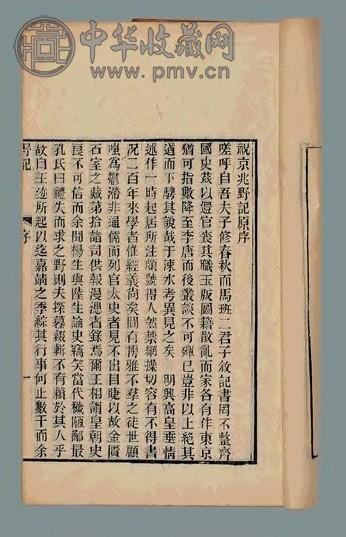 中华收藏网
www.pmv.cn
祝京兆野記原序
嗟呼自吾夫子修春秋而馬班二君子敘記書罔不整齊
國史茲以還官喪其職玉版圖籍散亂而家各有作東京
猶可指數降至李唐而後叢談不可殫已豈非以上絕其
道而下騁其說哉于涑水考異見之矣 明興高皇垂情
述作一時起居所注頗號得人然禁網操切容有不得書
況二百年來學者惟經義尚矣間有博雅不羣之徒世顧
嗤為駁滯非通儒而列官太史者見不出目睫以故金匱
石室之藏第拾詣司供報漫慂者錄焉爾王相謂皇朝史
良不可信而余聞楊生與陸生論史竊笑當代穢陋鄙最
孔氏曰禮失而求之野則夫探蹟綴輯不有賴於其人乎
故自王迹所起以迄嘉靖之季綜其行事何止數千而余
野記 序 一